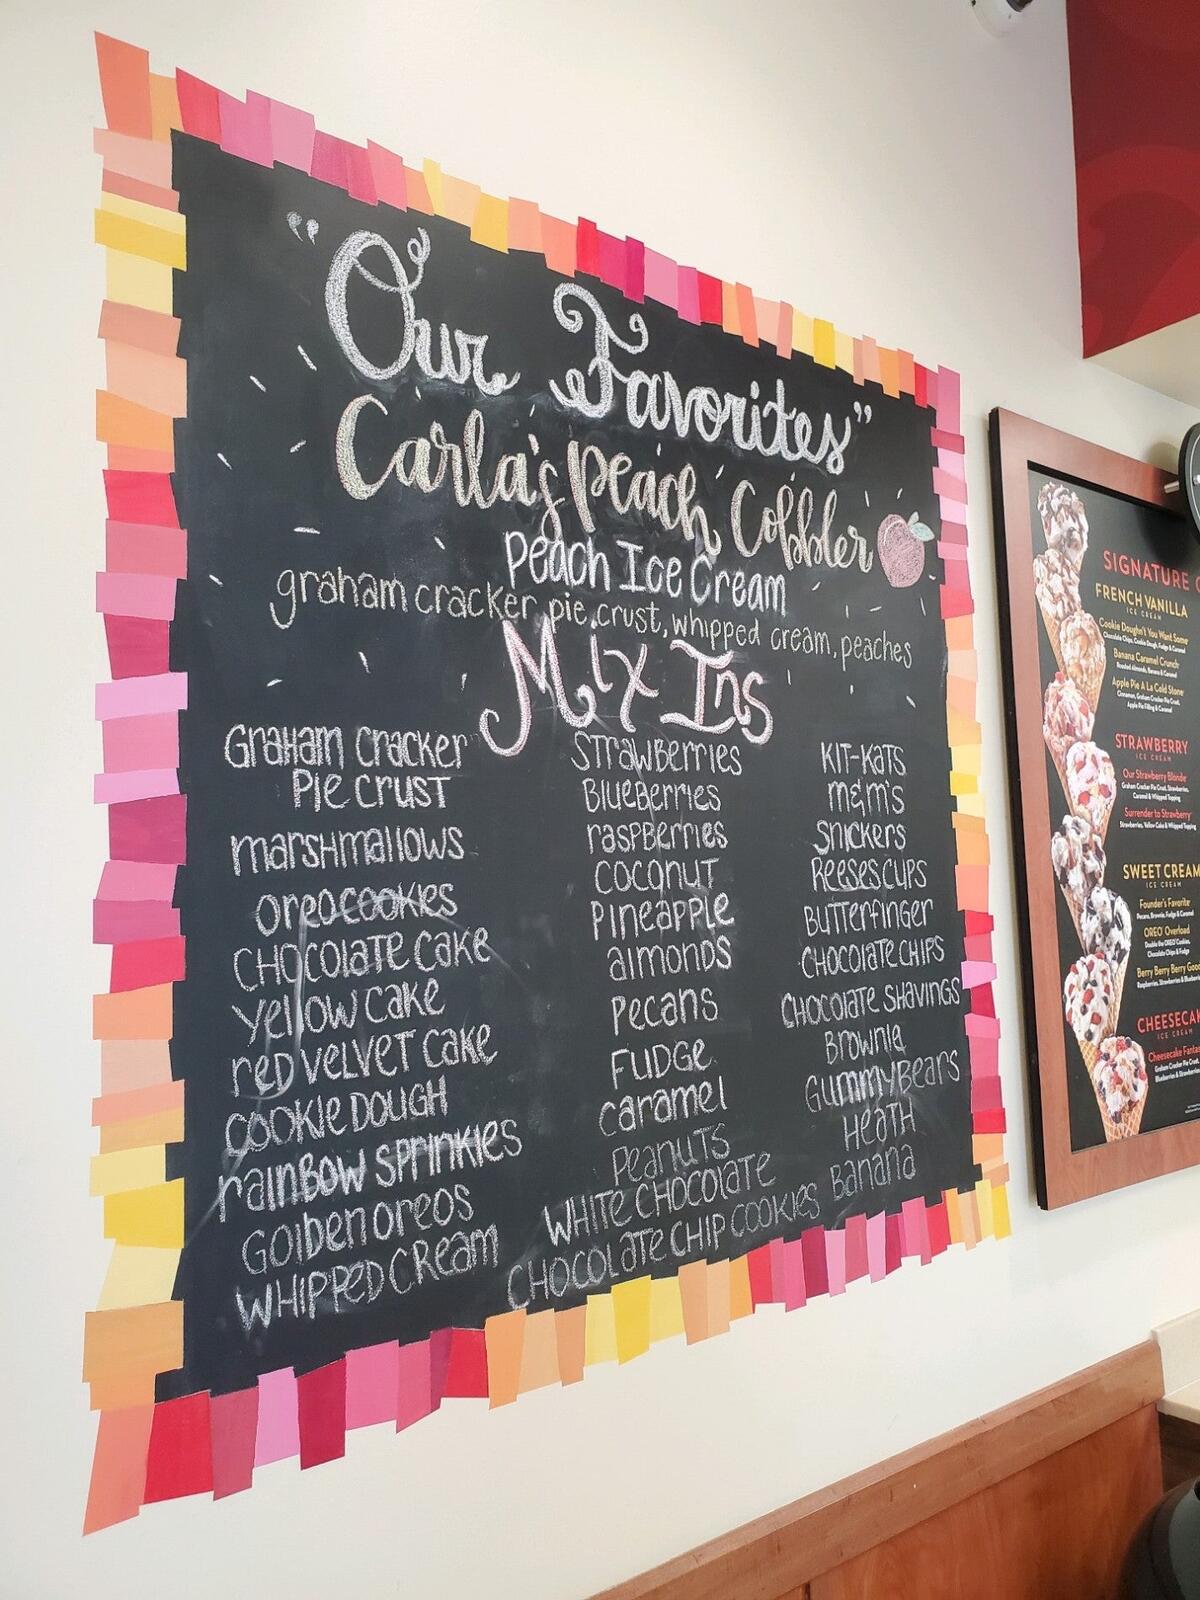 "Our Favorites"
Carla's Peach Cobbler
Peach Ice Cream
graham cracker pie crust, whipped cream, peaches
Mix Ins
Graham Cracker
Pie Crust
marshmallows
oreo cookies
Chocolate Cake
Yellow Cake
red velvet cake
Cookie Dough
rainbow sprinkles
Golden oreos
Whipped Cream
Strawberries
Blueberries
raspberries
coconut
Pineapple
almonds
Pecans
Fudge
caramel
Peanuts
White Chocolate
Chocolate Chip Cookies
Kit-Kats
m&m's
Snickers
Reeses cups
Butterfinger
Chocolate Chips
Chocolate Shavings
Brownie
Gummy Bears
Heath
Banana
SIGNATURE
FRENCH VANILLA
ICE CREAM
Cookie Doughn't You Want Some
Chocolate Chips, Cookie Dough, Fudge & Caramel
Banana Caramel Crunch
Roasted Almonds, Banana & Caramel
Apple Pie A La Cold Stone
Cinnamon, Graham Cracker Pie Crust,
Apple Pie Filling & Caramel
STRAWBERRY
ICE CREAM
Our Strawberry Blonde
Graham Cracker Pie Crust, Strawberries,
Caramel & Whipped Topping
Surrender to Strawberry
Strawberries, Yellow Cake & Whipped Topping
SWEET CREAM
ICE CREAM
Founder's Favorite
Pecans, Brownie, Fudge & Caramel
OREO Overload
Double the OREO Cookies,
Chocolate Chips & Fudge
Berry Berry Berry Good
Raspberries, Strawberries &
CHEESECAK
ICE CREAM
Cheesecake Fantas
Graham Cracker Pie Crust,
Blueberries &